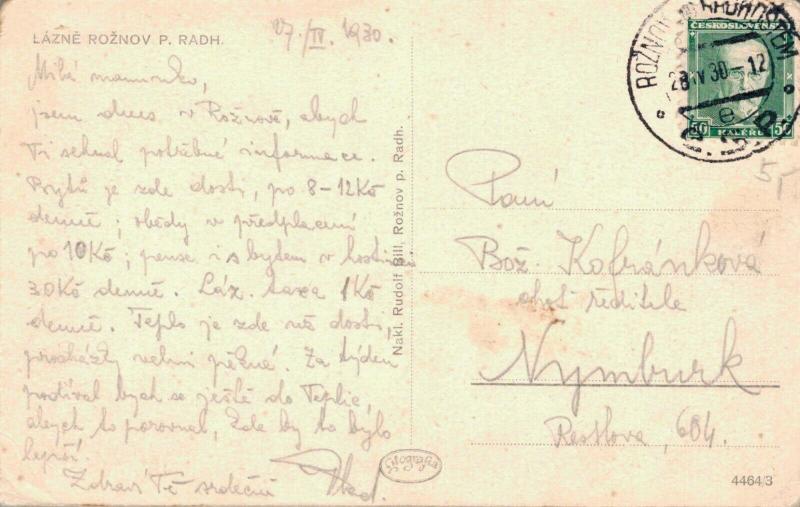 LÁZNĚ ROŽNOV P. RADH.
27/IV 1930.
Milá maminko,
jsem dnes v Rožnově, abych
Ti sehnal potřebné informace.
Bytů je zde dosti, po 8-12Kč
denně; obědy v předplacení
po 10Kč; pense i s bytem v hostinci
30Kč denně. Láz. taxa 1Kč
denně. Teplo je zde už dosti,
procházky velmi pěkné. Za týden
podíval bych se ještě do Teplic,
abych to porovnal, zde by to bylo
lepší.
Zdraví Tě srdečně Vlad.
Nakl. Rudolf Bill, Rožnov p. Radh.
Grafografia
ČESKOSLOVENSKO
50 HALÉŘŮ 50
ROŽNOV POD RADHOŠTĚM
28 IV 30-12
e
5,-
Paní
Bož. Kofránková
choť ředitele
Nymburk
Resslova, 604.
4464/3